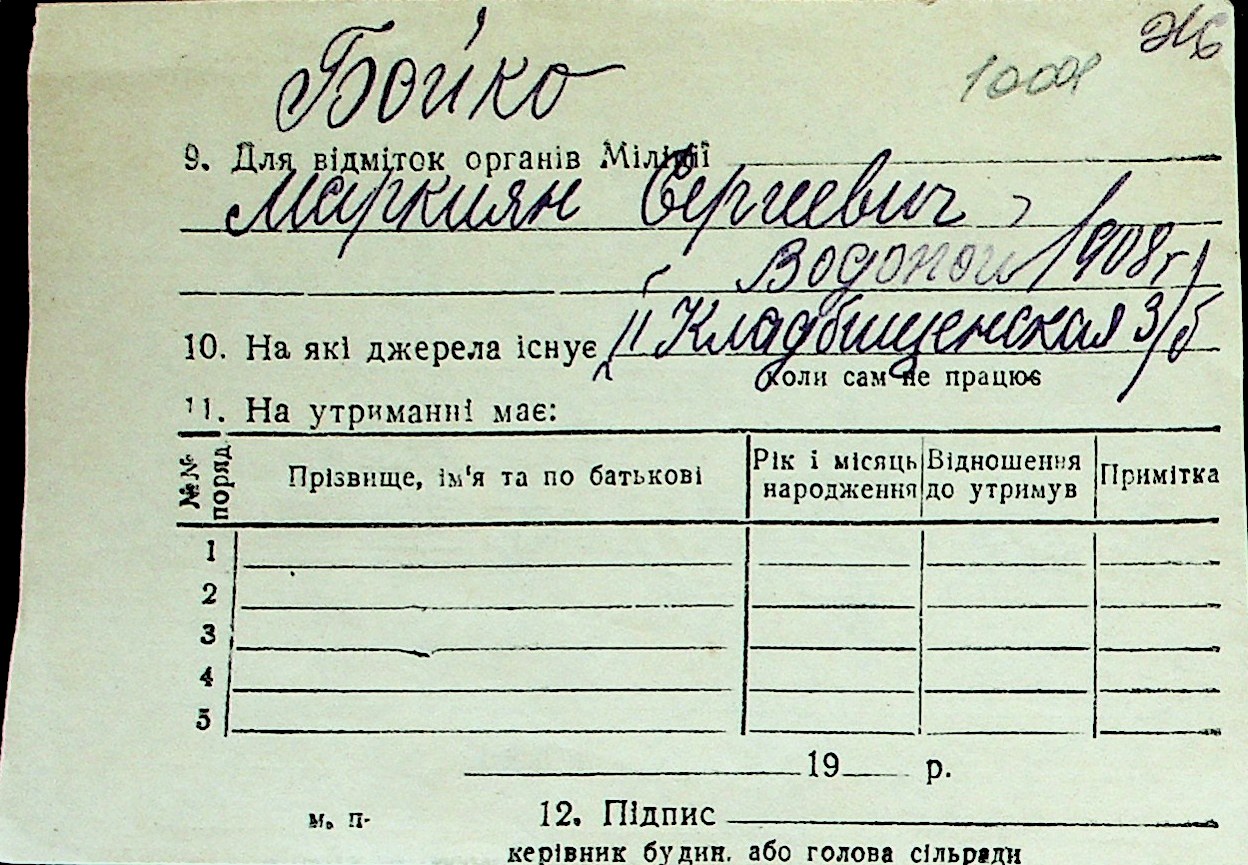 Бойко
1001
9. Для відміток органів Міліції
Маркиян Сергеевич
Водопой 1908 г.
10. На які джерела існує II Кладбищенская 3/5
коли сам не працює
11. На утриманні має:
№№ поряд
Прізвище, ім'я та по батькові
Рік і місяць народження
Відношення до утримув
Примітка
1
2
3
4
5
19 р.
м. п.
12. Підпис
керівник будин. або голова сільради